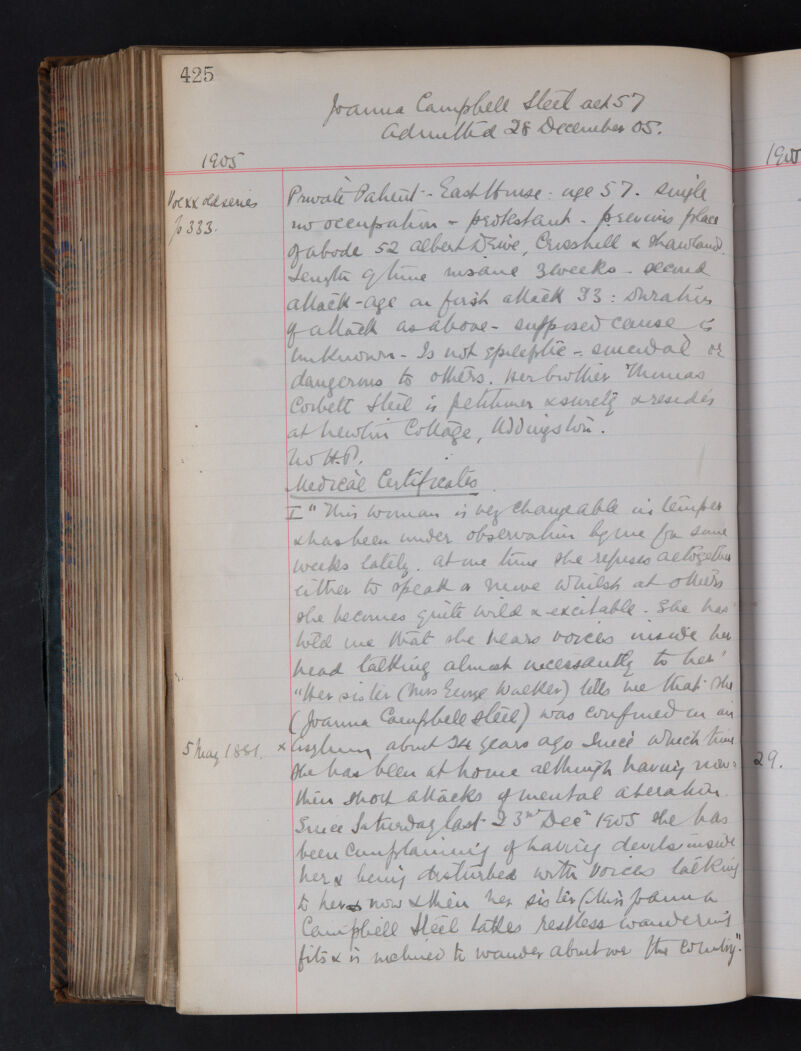 425
Joanna Campbell Steel aet 57
Admitted 28 December 05.
1905
190
Vol xx old series
p 333.
Private Patient - East House : age 57. single
no occupation - protestant - previous place
of abode 52 Albert Drive, Crosshill & Shawlands.
Length of time insane 3 weeks - second
attack - age on first attack 33 : duration
of attack as above - supposed cause is
unknown - Is not epileptic - suicidal or
dangerous to others. Her brother Thomas
Corbett Steel is petitioner & surety & resides
at Cottage, Uddingston.
No H.P.
Medical Certificates
I "This woman is very changeable in temper
& has been under observation by me for some
weeks lately. At one time she refuses altogether
either to speak or move whilst at others
she becomes quite wild & excitable. She has
told me that she hears voices inside her
head talking almost incessantly to her"
"Her sister (Mrs George Walker) tells me that she
(Joanna Campbell Steel) was confined in an
5 May 1881. x Asylum about 24 years ago since which time
she has been at home although having now &
then short attacks of mental aberation.
Since Saturday last 23rd Decr 1905 she has
been complaining of having devils inside
her & being disturbed with voices talking
to her & now & then her sister (Miss Joanna
Campbell Steel takes restless wandering
fits & is inclined to wander about over the country."
29.